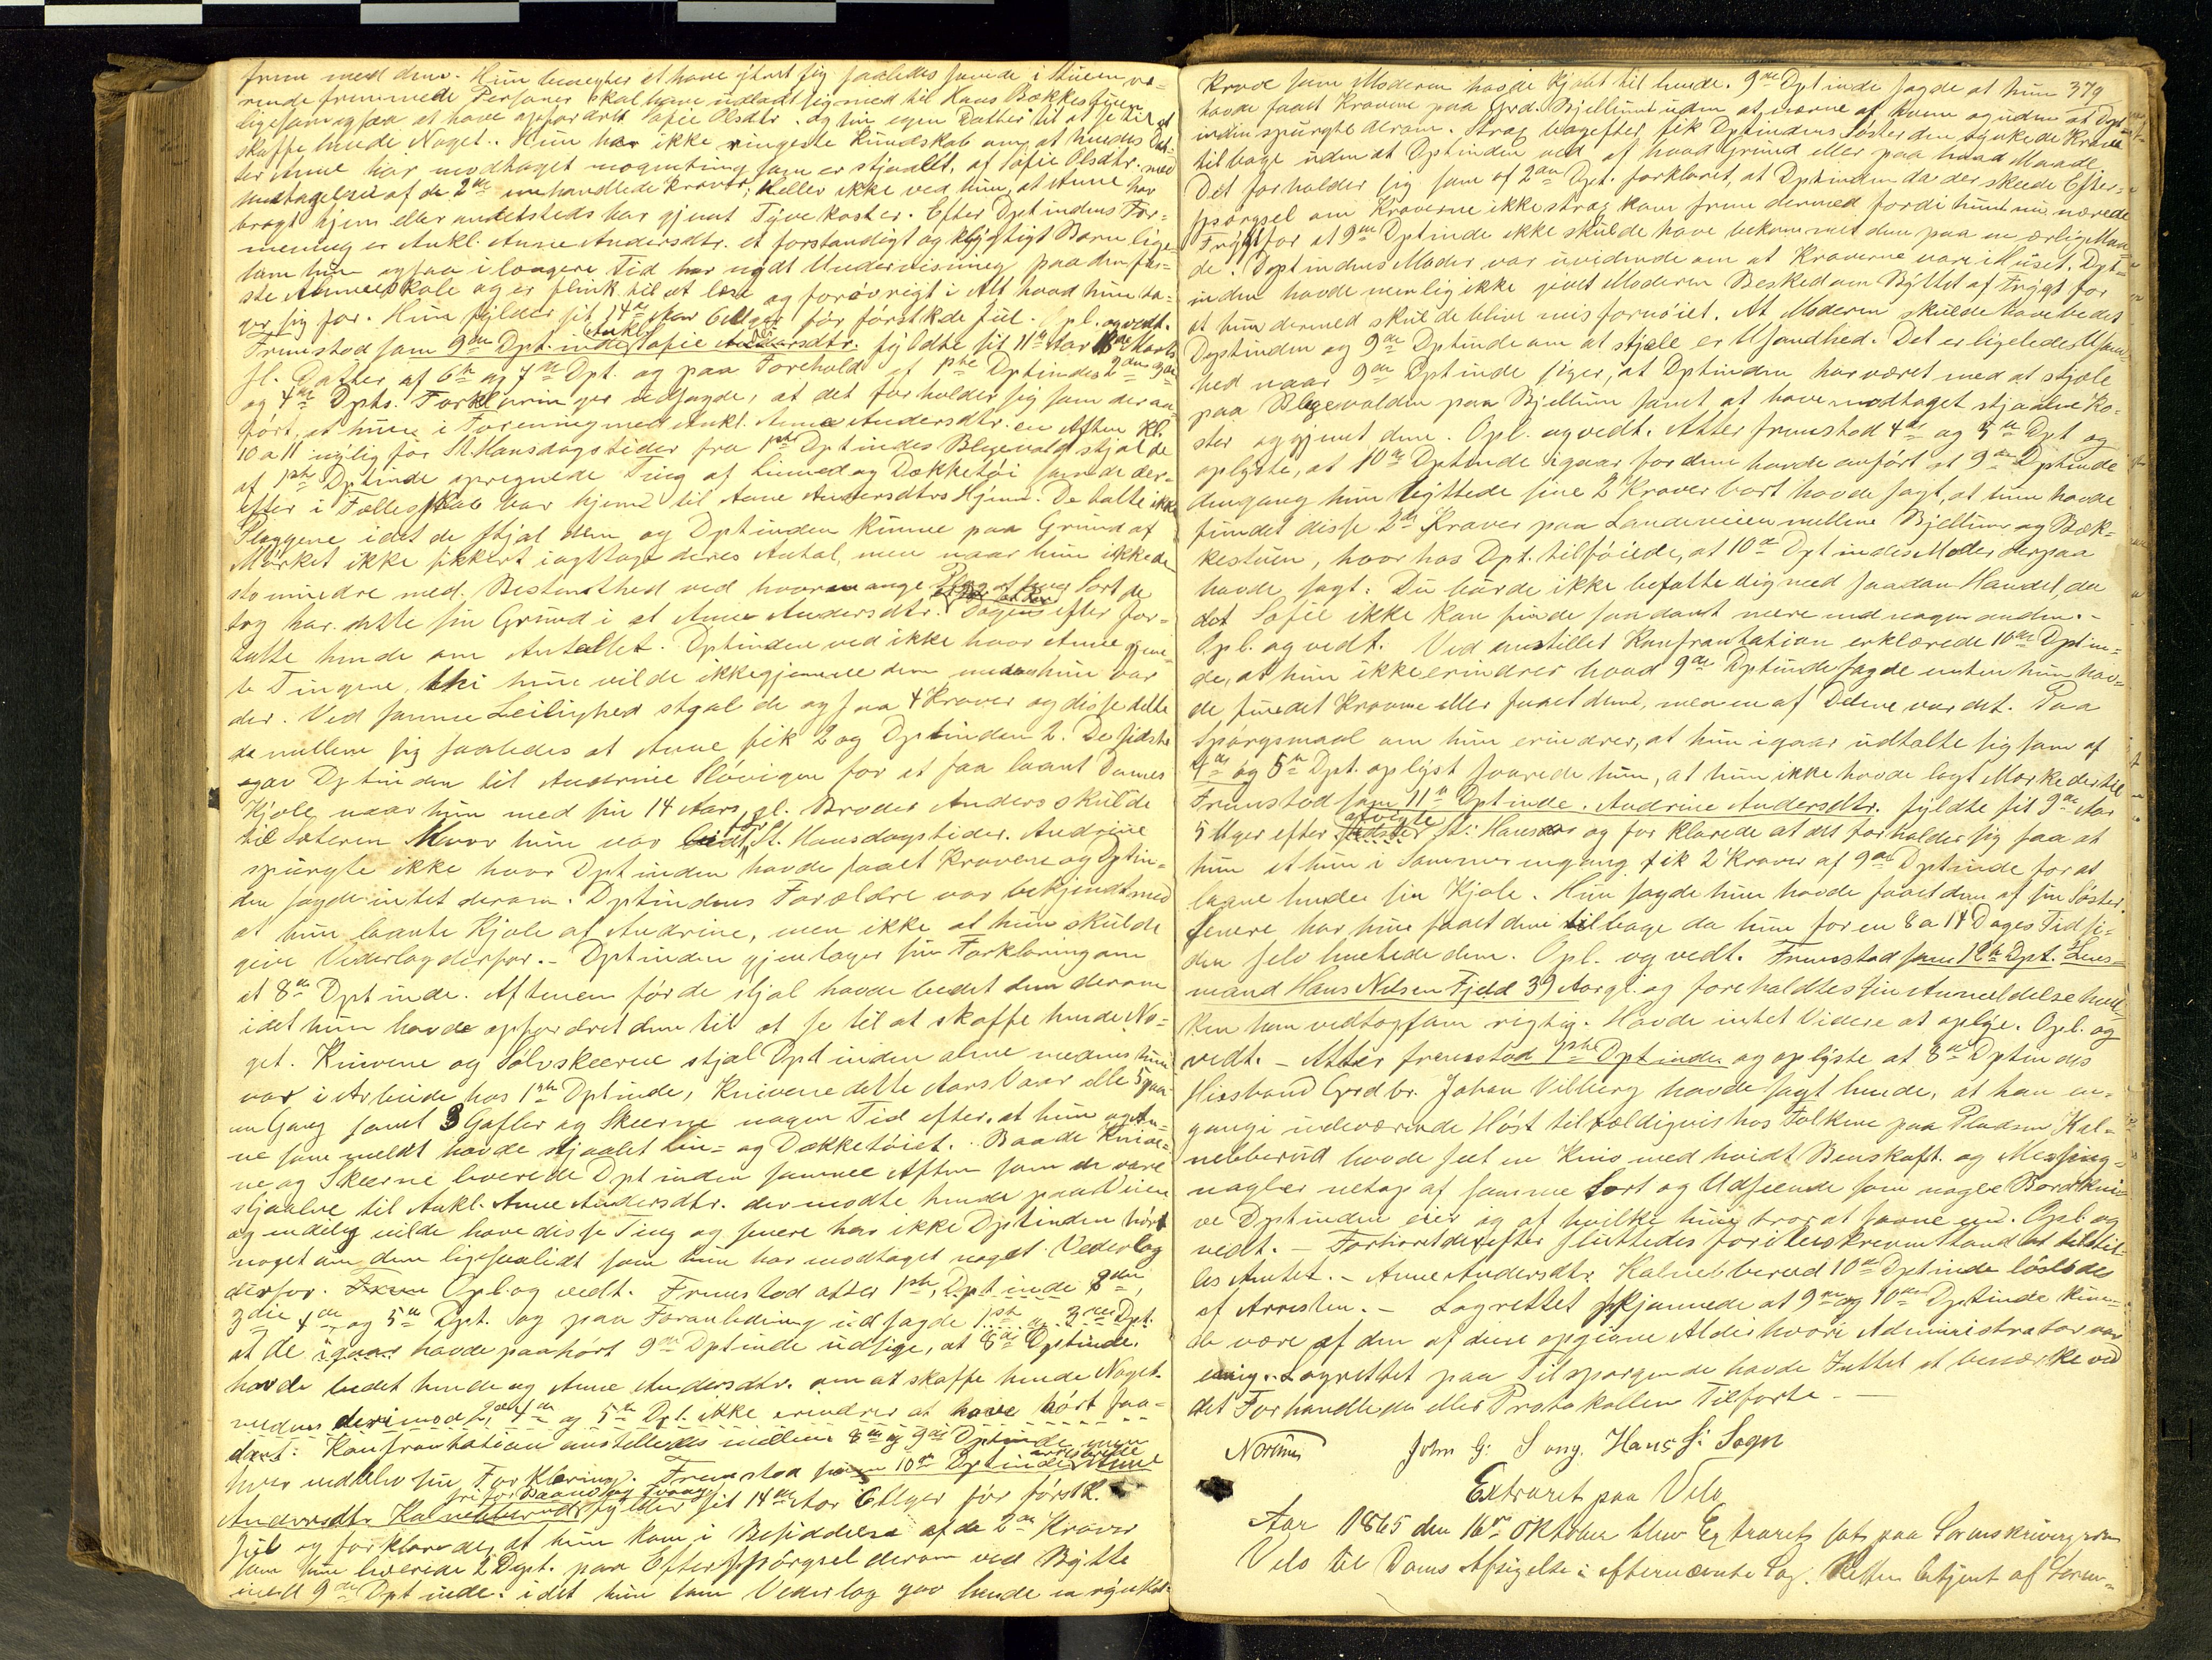 frem med dem. Hun benegter at have ytret sig saaledes som de i Stuen væ-
rende fremmede Personer skal have udladt sig med til Hans Bækkestuen
ligesom ogsaa at have opfordret Sofie Olsdtr. og sin egen Datter til at se til at
skaffe hende Noget. Hun har ikke ringeste Kundskab om, at hendes Dat-
ter Anne har modtaget nogenting som er stjaalet, af Sofie Olsdtr. med
undtagelse af de 2de omhandlede Kraver; Heller ikke ved hun, at Anne har
bragt hjem eller andetsteds har gjemt Tyvekoster. Efter Dptindens For-
mening er Ankl. Anne Andersdtr. et forstandigt og kløgtigt Barn lige
som hun ogsaa i længere Tid har nydt Undervisning paa den før-
ste Almueskole og er flink til at læse og forøvrigt i Alt hvad hun ta-
ger sig for. Hun fylder sit 14de Aar 6 Uger før førstk. Jul. Opl. og vedt.
Fremstod som 9de Dpt.inde Ankl. Sofie Andersdtr. fyldte sit 11te Aar 18de Marts
sl. Datter af 6te og 7de Dpt. og paa Forehold af 1ste Dptindes 2den 3die
og 4de Dpts. Forklaringer udsagde, at det forholder sig som der an-
ført, at hun i Forening med Ankl. Anne Andersdtr. en Aften Kl.
10 a 11 nylig før St. Hansdagstider fra 1ste Dptindes Blegevold stjal de
af 1ste Dptinde opregnede Ting af Linned og Dækketøi som de der-
efter i Fællesskab bar hjem til Anne Andersdtrs Hjem. De talte ikke
Plaggene idet de stjal dem og Dptinden kunne paa Grund af
Mørket ikke sikkert iagttage deres Antal, men naar hun ikke de
sto mindre med Bestemthed ved hvormange Plag af hver Sort de
tog har dette sin Grund i at Anne Andersdtr. Dagen efter for-
talte hende om Antallet. Dptinden ved ikke hvor Anne gjem-
te Tingene, thi hun vilde ikke gjemme dem medens hun var
der. Ved samme Leilighed stjal de ogsaa 4 Kraver og disse delte
de mellem sig saaledes at Anne fik 2 og Dptinden 2. De sidste
gav Dptinden til Andrine for at faa laant Dennes
Kjole, naar hun med sin 14 Aars gl. Broder Anders skulde
til Sæteren hvor hun var St. Hansdagstider. Andrine
spurgte ikke hvor Dptinden havde faaet Kravene og Dptin-
den sagde intet derom. Dptindens Forældre var bekjendt med
at hun laante Kjole af Andrine, men ikke at hun skulde
give Vederlag derfor. - Dptinden gjentager sin Forklaring om
at 8de Dptinde. Aftenen før de stjal havde bedet dem derom
idet hun havde opfordret dem til at se til at skaffe hende No-
get. Knivene og Sølvskeerne stjal Dptinden alene medens hun
var i Arbeide hos 1ste Dptinde, Knivene dette Aars Vaar alle 5 paa
en Gang samt 3 Gafler og Skeerne nogen Tid efter, at hun og An-
ne som meldt havde stjaalet Lin- og Dækketøiet. Baade Knive-
ne og Skeerne leverede Dptinden samme Aften som de vare
stjaalne til Ankl. Anne Andersdtr. der mødte hende paa Veien
og endelig vilde have disse Ting og senere har ikke Dptinden hørt
noget om dem ligesaalidt som hun har modtaget noget Vederlag
derfor. Opl. og vedt. Fremstod atter 1ste Dptinde 2den,
3die 4de og 5te Dpt. og paa Foranledning udsagde 1ste og 3die Dpt.
at de igaar havde paahørt 9de Dptinde udsige, at 8de Dptinde.
havde bedet hende og Anne Andersdtr. om at skaffe hende Noget
medens derimod 2den 4de og 5te Dpt. ikke erindrer at have hørt saa-
dant. Konfrontation anstilledes mellem 8de og 9de Dptinde men
hver vedblev sin Forklaring. Fremstod som 10de Dptinde arresterede Anne
Andersdtr. Kalnebberud fri for Baand og Tvang fylder sit 14de Aar 6 Uger før førstk.
Jul og forklarede, at hun kom i Besiddelse af de 2de Kraver
som hun leverede 2 Dept. paa Efterspørgsel derom ved Bytte
med 9de Dptinde. idet hun som Vederlag gav hende en rynket
Krave som Moderen havde kjøbt til hende. 9de Dptinde sagde at hun 379
havde faaet Kravene paa Grd. Bjellum uden at nævne af hvem og uden at Dpt-
inden spurgte derom. Strax bagefter fik Dptindens Søster den rynkede Krave
tilbage uden at Dptinden ved af hvad Grund eller paa hvad Maade.
Det forholder sig som af 2den Dpt. forklaret, at Dptinden da der skede Efter-
spørgsel om Kraverne ikke strax kom frem dermed fordi hun nu nærede
Frygt for at 9de Dptinde ikke skulde have bekommet dem paa en ærlig Maa-
de. Dptindens Moder var uvidende om at Kraverne vare i Huset. Dpt-
inden havde nemlig ikke givet Moderen Besked om Byttet af Frygt for
at hun dermed skulde blive misfornøiet. At Moderen skulde have bedet
Dptinden og 9de Dptinde om at stjæle er Usandhed. Det er ligeledes Usand-
hed naar 9de Dptinde siger, at Dptinden har været med at stjæle
paa Blegevolden paa Bjellum samt at have modtaget stjaalne Ko-
ster og gjemt dem. Opl. og vedt. Atter fremstod 4de og 5te Dpt og
oplyste, at 10de Dptinde igaar for dem havde anført at 9de Dptinde
dengang hun byttede sine 2 Kraver bort havde sagt, at hun havde
fundet disse 2de Kraver paa Landeveien mellem Bjellum og Bæk-
kestuen, hvorhos Dpt. tilføiede, at 10de Dptindes Moder derpaa
havde sagt: Du burde ikke befatte dig med saadan Handel, da
det Sofie ikke kan finde saadant mere end nogen anden. -
Opl. og vedt. Ved anstillet Konfrontation erklærede 10de Dptin-
de, at hun ikke erindrer hvad 9de Dptinde sagde enten hun hav-
de fundet Kravene eller faaet dem, men en af Delene var det. Paa
Spørgsmaal om hun erindrer, at hun igaar udtalte sig som af
4de og 5te Dpt. oplyst svarede hun, at hun ikke havde lagt Mærke dertil
Fremstod som 11te Dptinde. Andrine Andersdtr. fyldte sit 9de Aar
5 Uger efter afvigte St. Hans og forklarede at det forholder sig saa at
hun at hun i Sommer engang fik 2 Kraver af 9de Dptinde for at
laane hende sin Kjole. Hun sagde hun havde faaet dem af sin Søster.
Senere har hun faaet dem tilbage da hun for en 8 a 14 Dages Tid si-
den selv hentede dem. Opl. og vedt. Fremstod som 12te Dpt. Lens-
mand Hans Nilsen Fjeld 39 Aar gl. og foreholdtes sin Anmeldelse hvil-
ken han vedtog som rigtig. Havde intet Videre at oplyse. Opl. og
vedt. - Atter fremstod 1ste Dptinde og oplyste at 8de Dptindes
Husbond Grdbr. Johan Vilberg havde sagt hende, at han en-
gang i indeværende Høst tilfældigvis hos Folkene paa Pladsen Kal-
nebberud havde seet en Kniv med hvidt Benskaft og Messing-
nagler netop af samme Sort og Udseende som nogle Bordkni-
ve Dptinden eier og af hvilke hun tror at savne en. Opl. og
vedt. - Forhøret derefter sluttedes for i Udskrevm. Stand at tilstil-
les Amtet. - Anne Andersdtr. Kalnebberud 10de Dptinde løslodes
af Arresten. - Lagrettet skjønnede at 9de og 10de Dptinde kun-
de være af den af dem opgivne Alder hvori Administrator var
enig. Lagrettet paa Tilspørgende havde Intet at bemærke ved
det Forhandlede eller Protokollen Tilførte -
John G: S ong. Hans J: Sogn
Extraret paa Velo
Aar 1865 den 16de Oktober blev Extraret sat paa Sorenskrivergaarden
Velo til Doms Afsigelse i efternævnte Sag. Retten betjent af Soren-